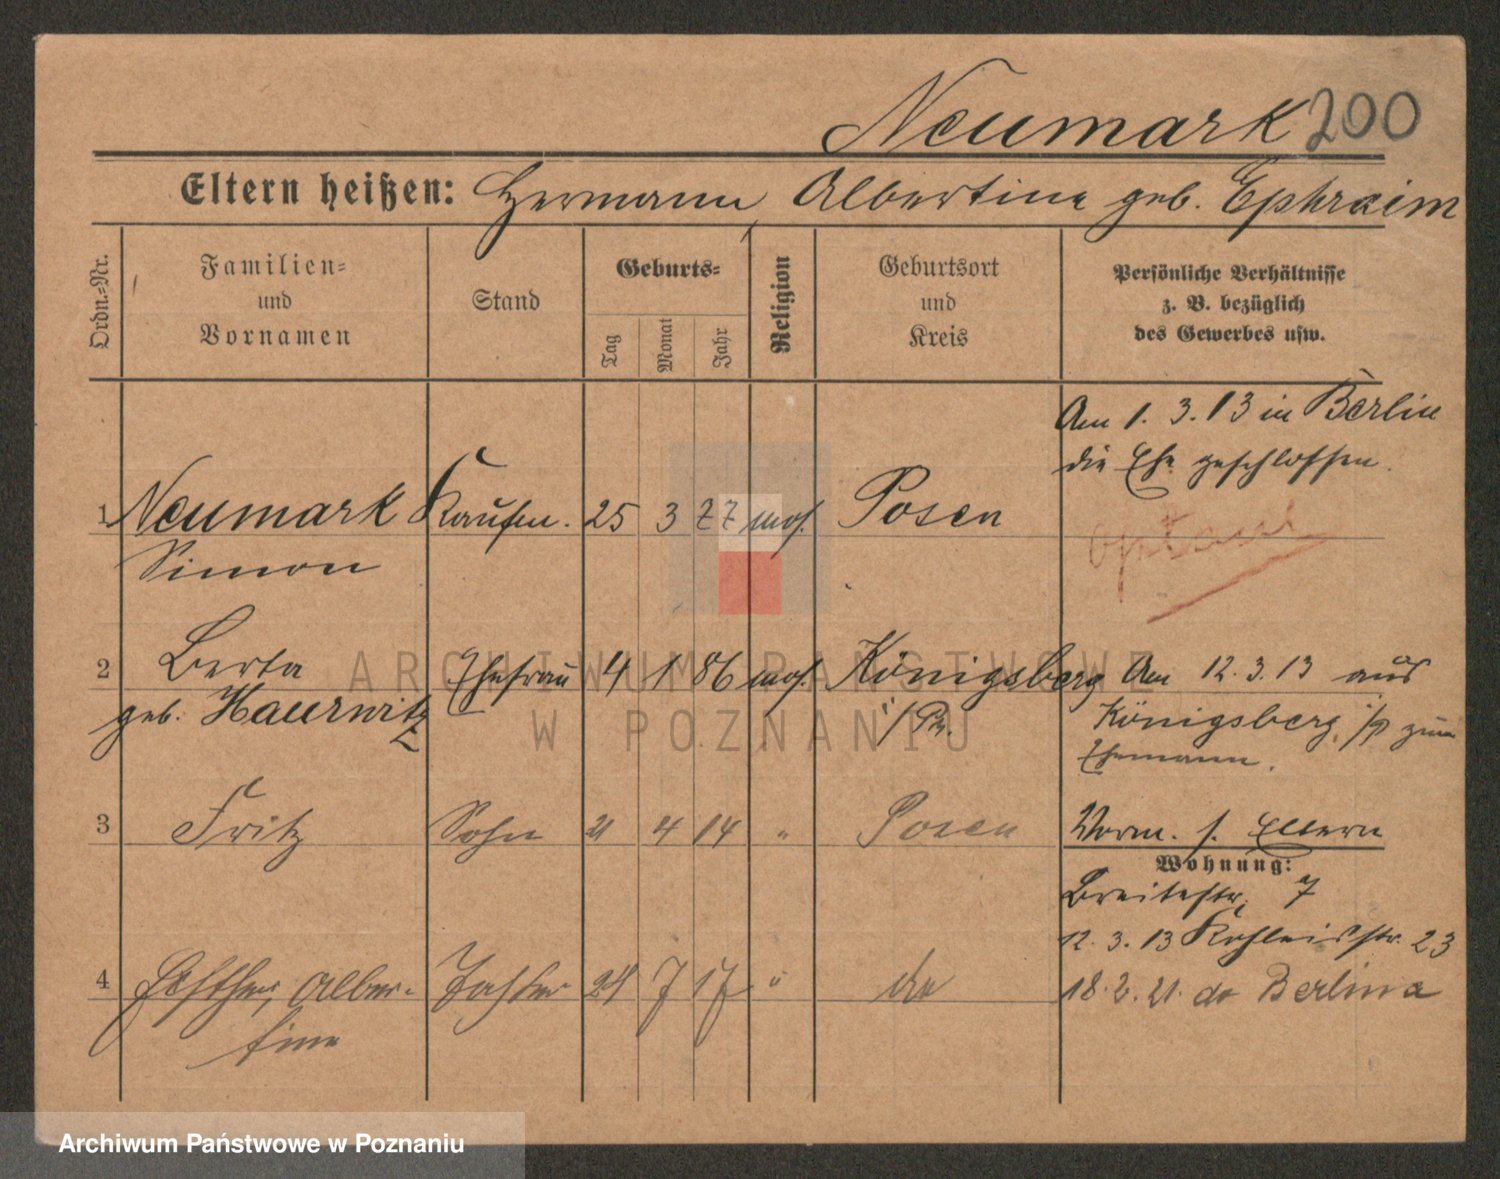 Neumark 200
Eltern heißen: Hermann, Albertine geb. Ephraim
Ordn.=Nr.
Familien=
und
Vornamen
Stand
Geburts=
Tag
Monat
Jahr
Religion
Geburtsort
und
Kreis
Persönliche Verhältnisse
z. B. bezüglich
des Gewerbes usw.
Am 1. 3. 13 in Berlin
die Ehe geschlossen.
1 Neumark Kaufm. 25 3 77 mos. Posen
Simon
2 Berta Ehefrau 4 1 86 mos. Königsberg Am 12.3.13 aus
geb. Haurwitz i/Pr. Königsberg i/P zum
Ehemann.
3 Fritz Sohn 21 4 14 " Posen Vorm. s. Eltern
Wohnung:
Breitestr. 7
12. 3. 13 23
4 Esther, Alber- Tochter 24 7 17 " do 18. 2. 21. do Berlina
tine
ARCHIWUM PAŃSTWOWE
W POZNANIU
Archiwum Państwowe w Poznaniu